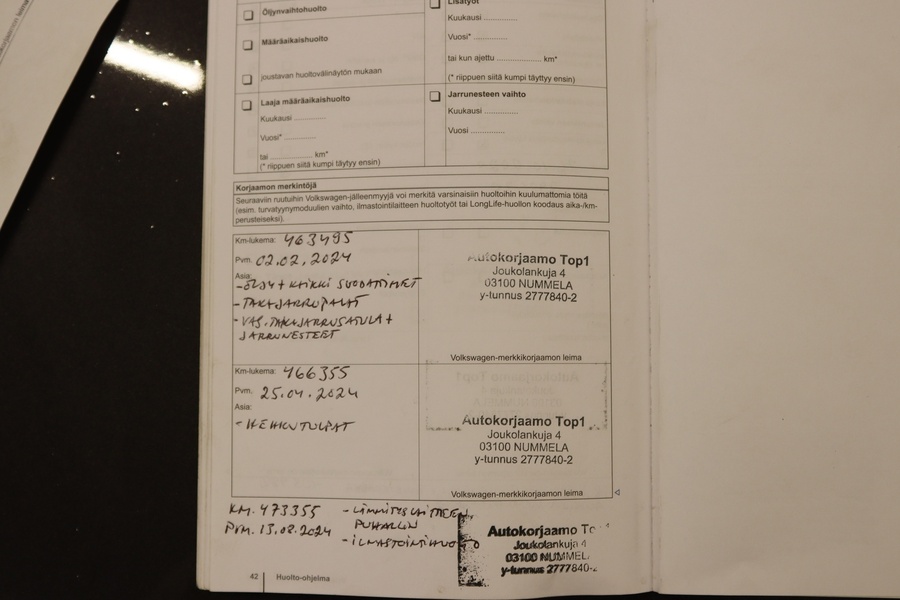 Öljynvaihtohuolto
Määräaikaishuolto
joustavan huoltovälinäytön mukaan
Laaja määräaikaishuolto
Kuukausi ............
Vuosi* ............
tai ................ km*
(* riippuen siitä kumpi täytyy ensin)
Lisätyöt
Kuukausi ............
Vuosi* ............
tai kun ajettu ................ km*
(* riippuen siitä kumpi täytyy ensin)
Jarrunesteen vaihto
Kuukausi ............
Vuosi ............
Korjaamon merkintöjä
Seuraaviin ruutuihin Volkswagen-jälleenmyyjä voi merkitä varsinaisiin huoltoihin kuulumattomia töitä
(esim. turvatyynymoduulien vaihto, ilmastointilaitteen huoltotyöt tai LongLife-huollon koodaus aika-/km-
perusteiseksi).
Km-lukema: 463495
Pvm. 02.02.2024
Asia:
- ÖLJY + KAIKKI SUODATTIMET
- TAKAJARRUPALAT
- VAS. TAKAJARRUSATULA +
JARRUNESTEET
Autokorjaamo Top1
Joukolankuja 4
03100 NUMMELA
y-tunnus 2777840-2
Volkswagen-merkkikorjaamon leima
Km-lukema: 466355
Pvm. 25.04.2024
Asia:
- HEHKUTULPAT
Autokorjaamo Top1
Joukolankuja 4
03100 NUMMELA
y-tunnus 2777840-2
Volkswagen-merkkikorjaamon leima
KM. 473355
Pvm. 13.08.2024
- LÄMMITYSLAITTEEN
PUHALLIN
- ILMASTOINTIHUOLTO
Autokorjaamo
Joukolankuja 4
03100 NUMMEL
y-tunnus 2777840-
42 Huolto-ohjelma